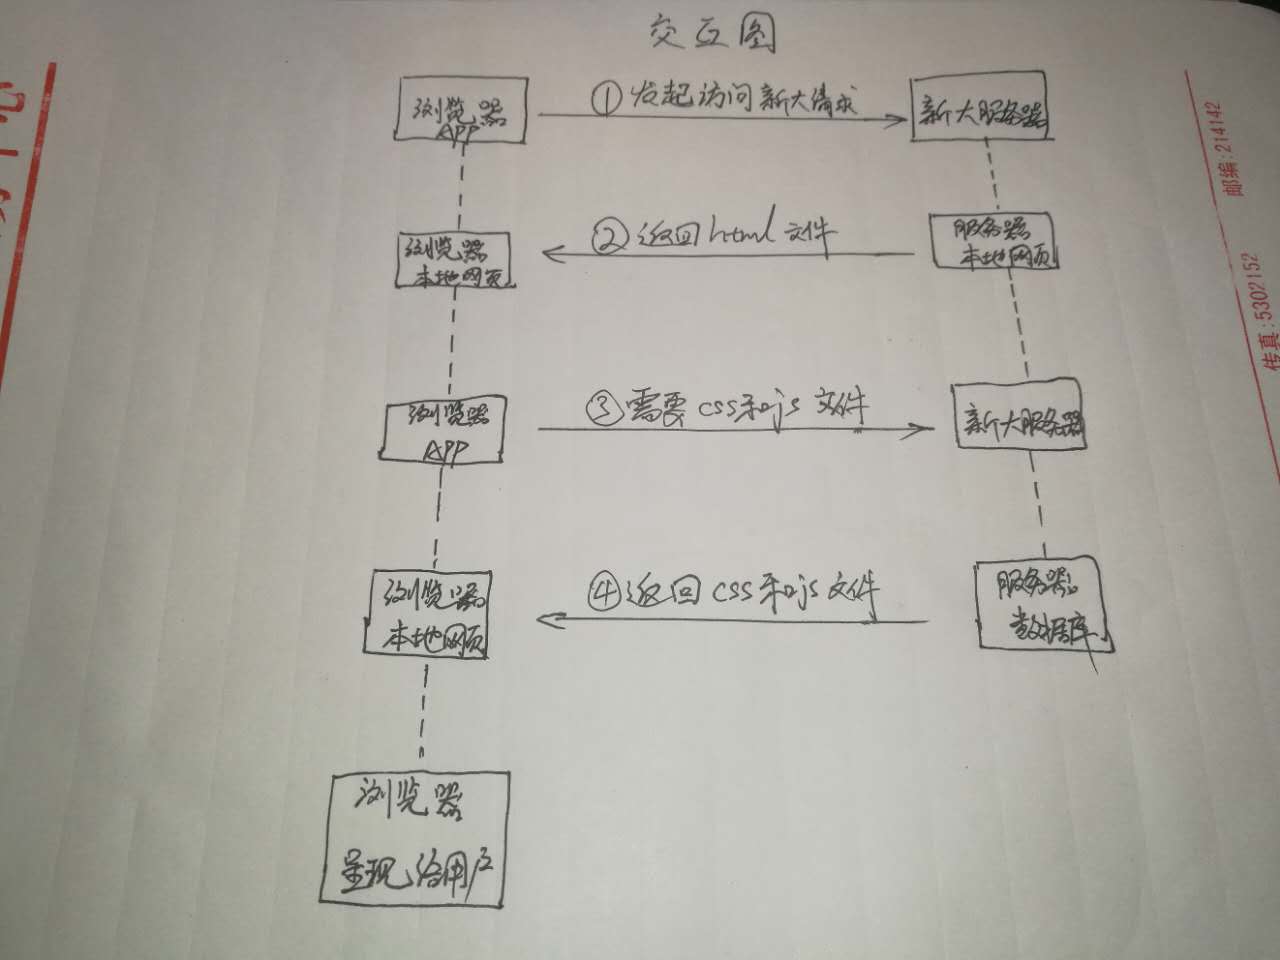 交互图
浏览器
APP
①发起访问新大请求
新大服务器
浏览器
本地网页
②返回html文件
服务器
本地网页
浏览器
APP
③需要css和js文件
新大服务器
浏览器
本地网页
④返回css和js文件
服务器
数据库
浏览器
呈现给用户
邮编:214142
传真:5302152